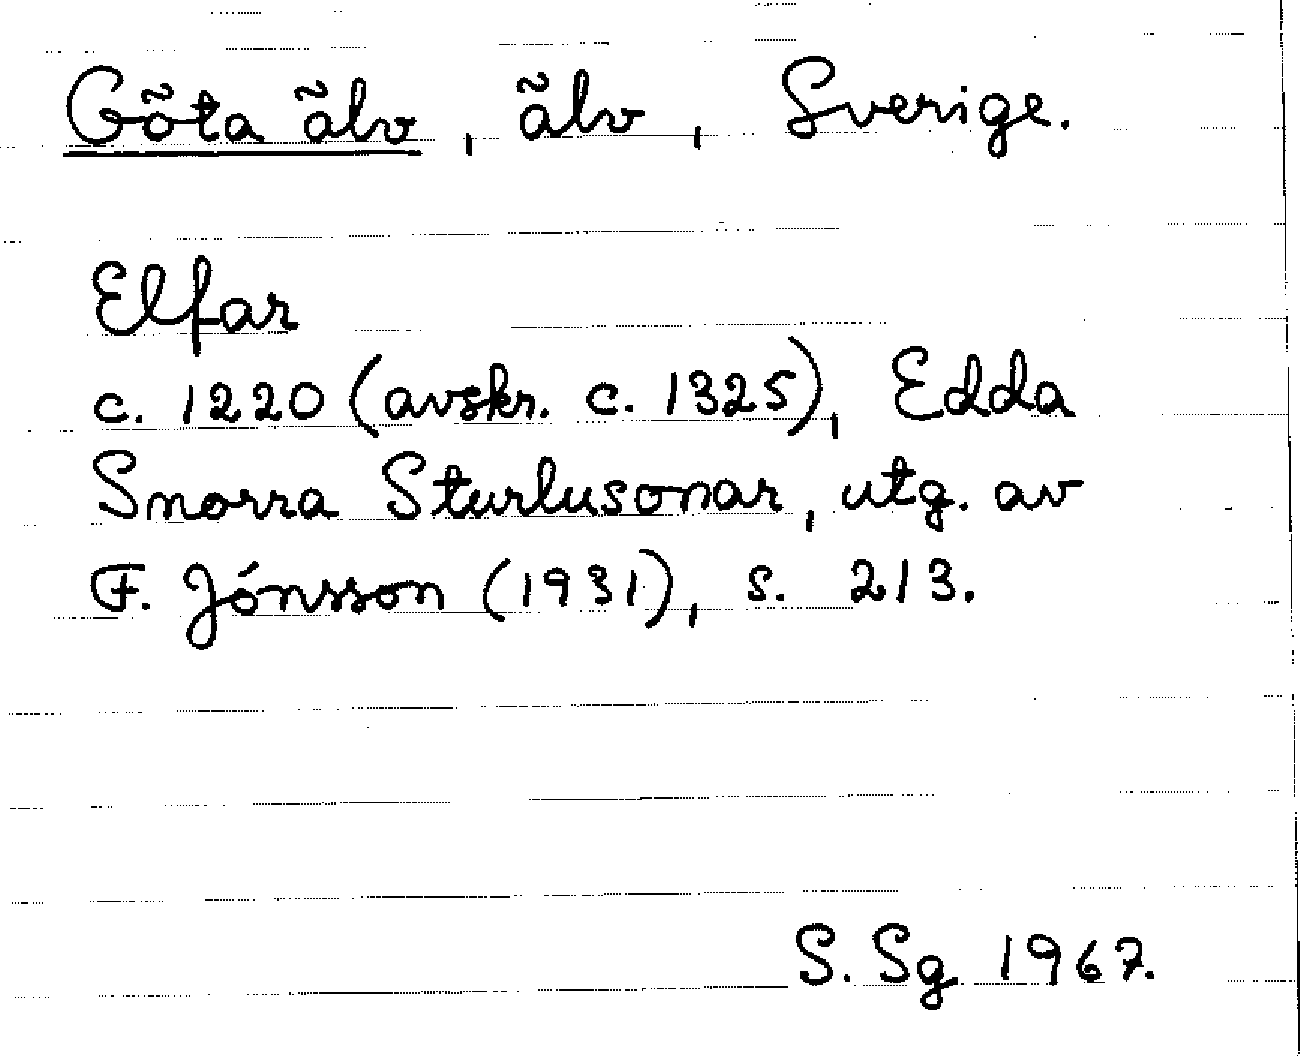 Göta älv, älv, Sverige.
Elfar
c. 1220 (avskr. c. 1325), Edda
Snorra Sturlusonar, utg. av
F. Jónsson (1931), s. 213.
S. Sg 1967.